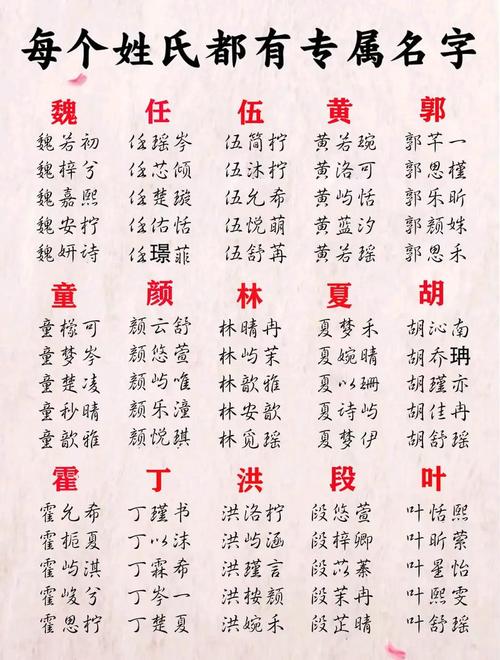 每个姓氏都有专属名字
魏 任 伍 黄 郭
魏若初 任瑶岑 伍简拧 黄若琬 郭芊一
魏梓兮 任芯倾 伍沐拧 黄洛可 郭思槿
魏嘉熙 任楚璇 伍允希 黄屿恬 郭乐昕
魏安拧 任佑恬 伍悦萌 黄蓝汐 郭颜姝
魏妍诗 任璟菲 伍舒苒 黄若瑶 郭思禾
童 颜 林 夏 胡
童檬可 颜云舒 林晴冉 夏梦禾 胡沁南
童梦岑 颜悠萱 林屿茉 夏婉晴 胡乔珃
童楚凌 颜屿唯 林歆雅 夏以珊 胡瑾亦
童秒晴 颜乐潼 林安歆 夏诗屿 胡佳冉
童歆雅 颜悦琪 林觅瑶 夏梦伊 胡舒瑶
霍 丁 洪 段 叶
霍允希 丁瑾书 洪洛拧 段悠萱 叶恬熙
霍栀夏 丁以沫 洪屿涵 段梓卿 叶昕萦
霍屿淇 丁霖希 洪瑾言 段苡蓁 叶星怡
霍峻兮 丁岑一 洪按颜 段茉冉 叶熙雯
霍思拧 丁楚夏 洪婉禾 段芷晴 叶舒瑶